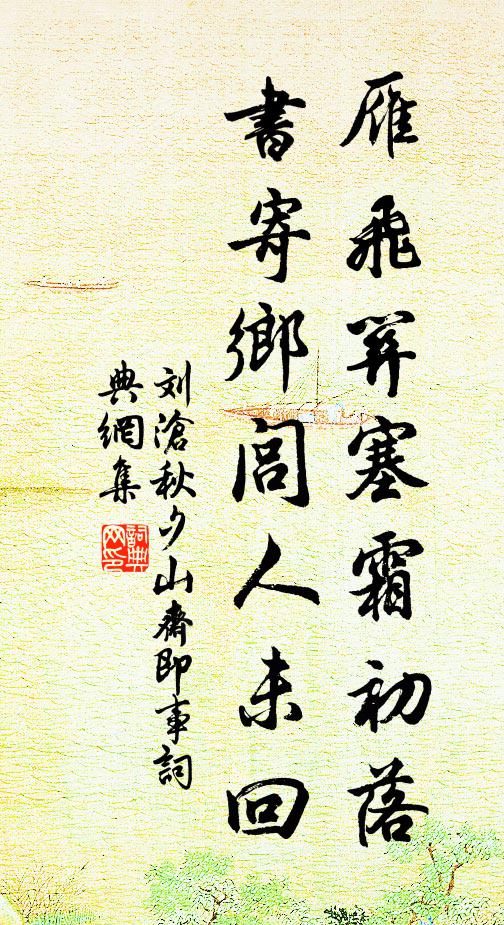 雁飛關塞霜初落
書寄鄉閭人未回
刘滄秋夕山齋即事詞
典網集
詞典
网印